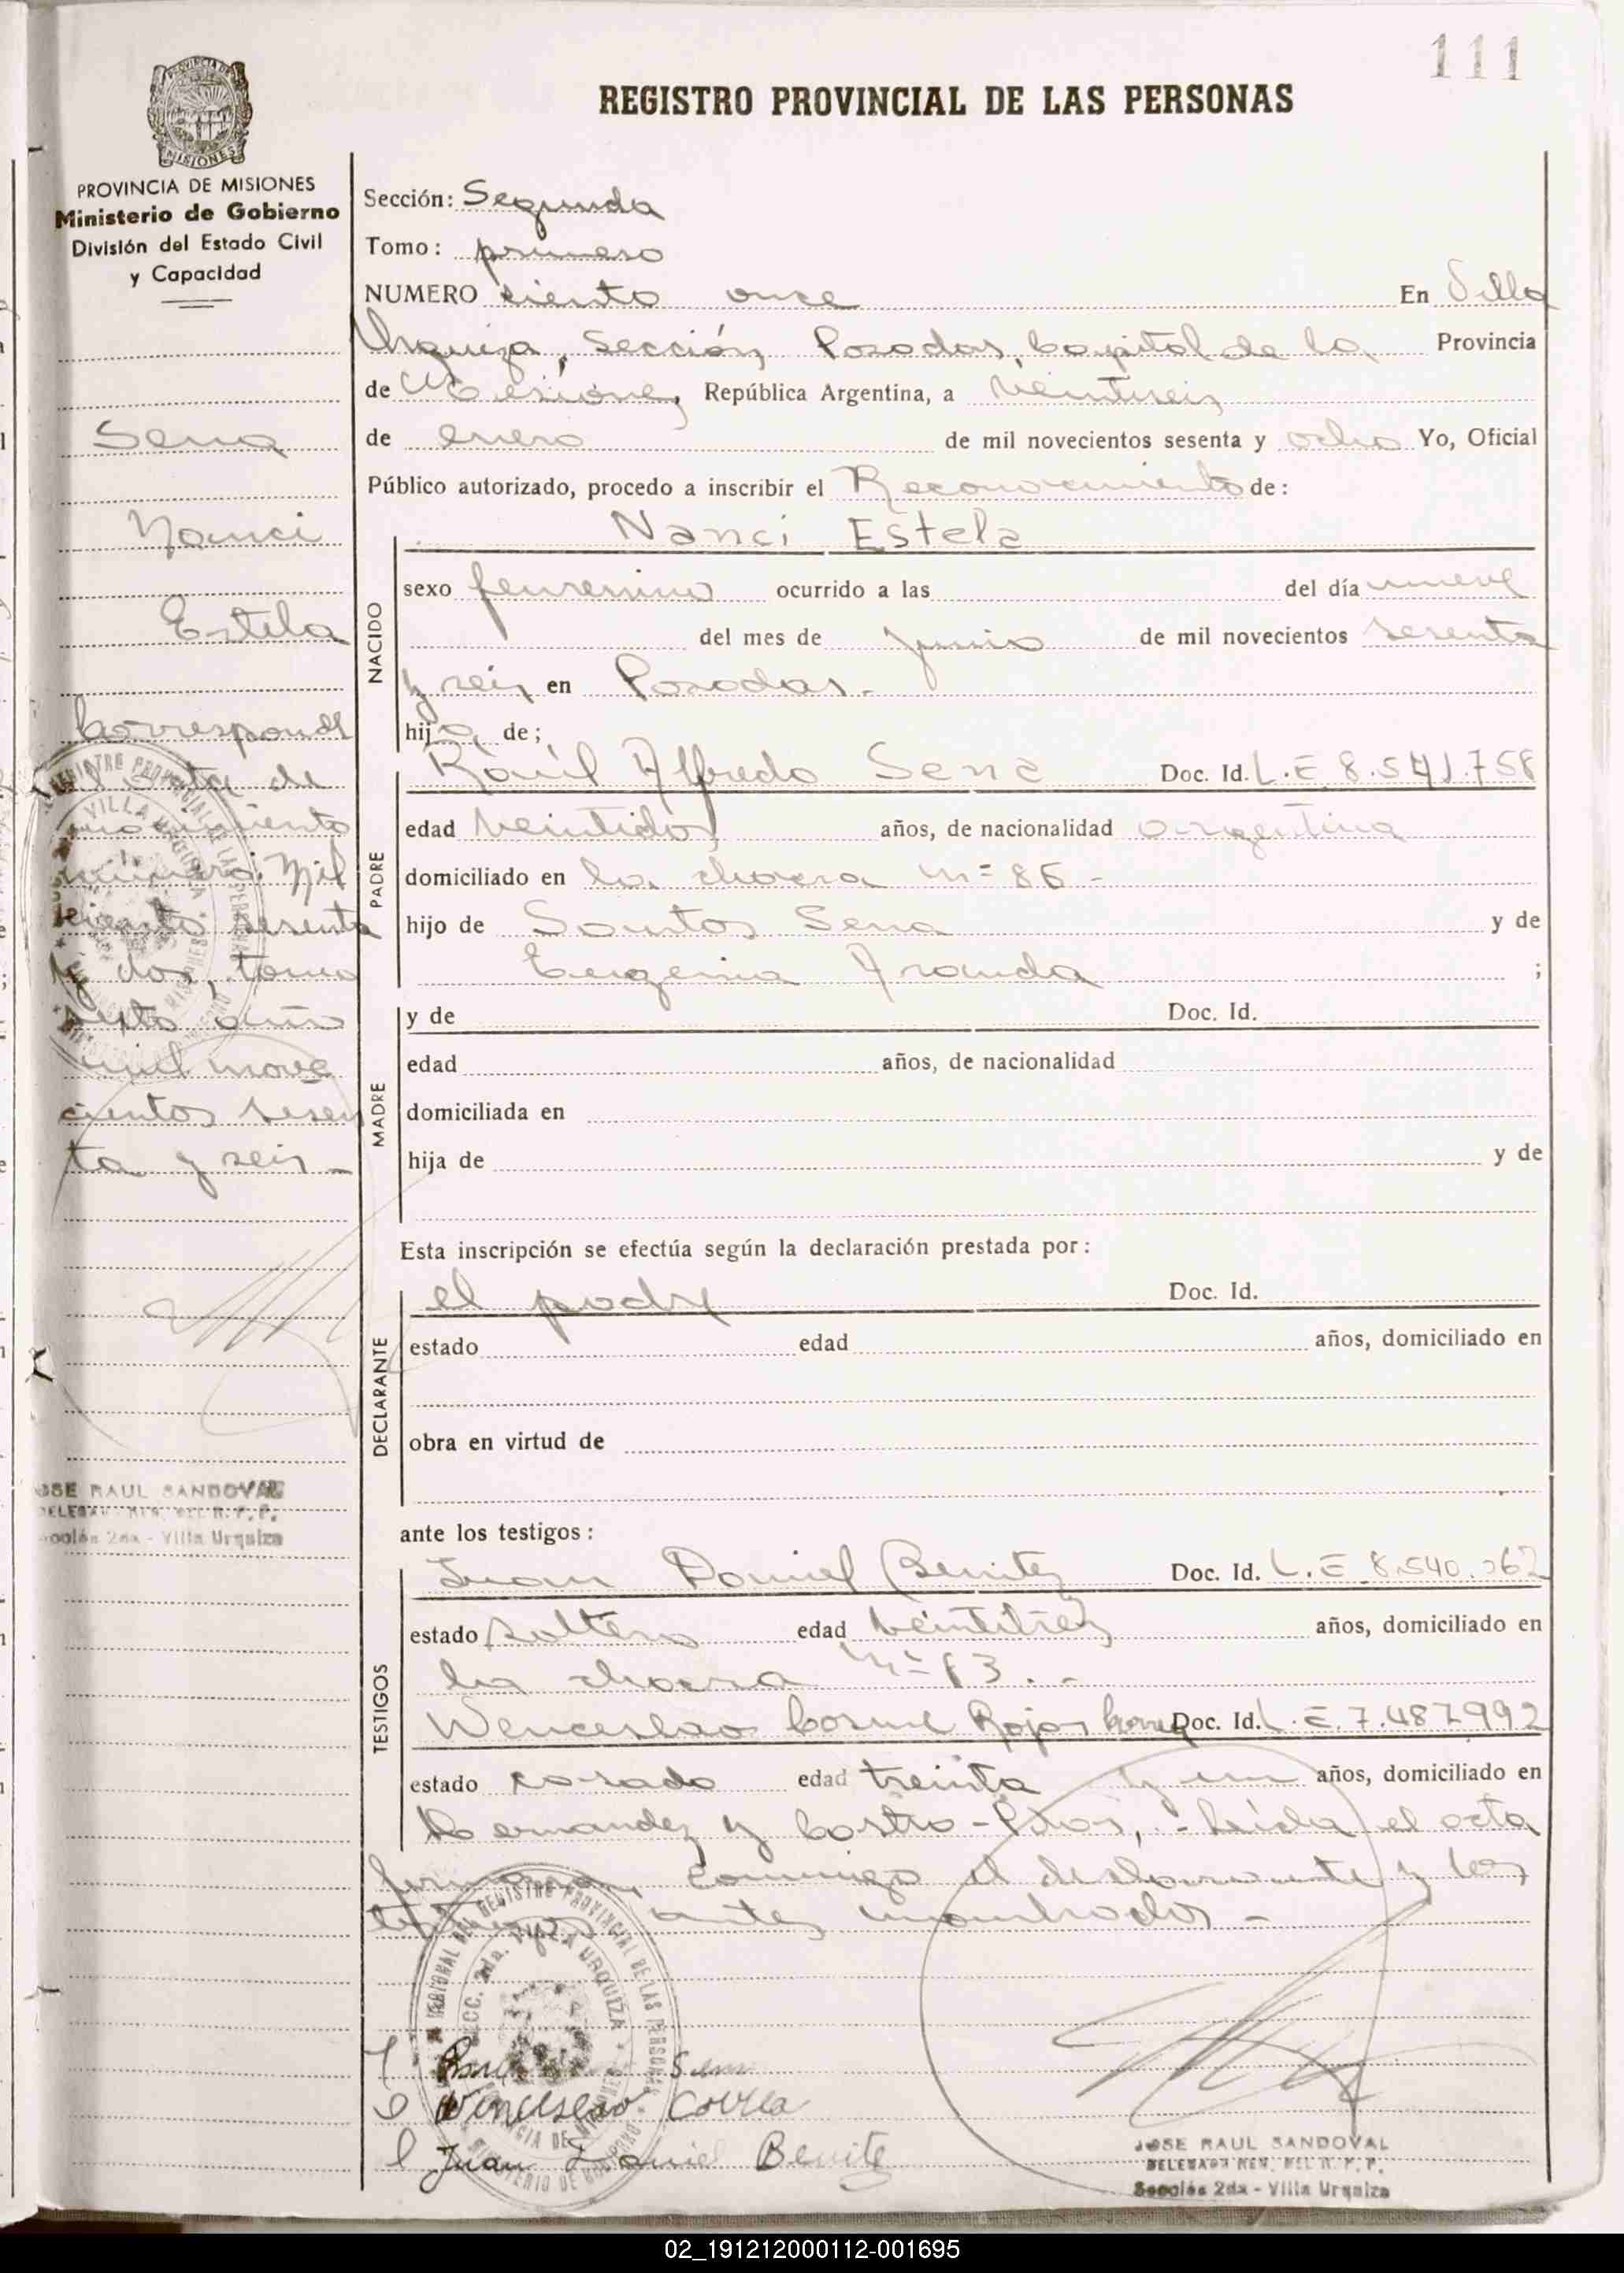 111
REGISTRO PROVINCIAL DE LAS PERSONAS
PROVINCIA DE MISIONES
MISIONES
PROVINCIA DE MISIONES
Ministerio de Gobierno
División del Estado Civil
y Capacidad
Sena
Nanci
Estela
Corresponde
al acta de
nacimiento
número: Mil
ciento sesenta
y dos, tomo
sexto año
mil nove
cientos sesen
ta y seis -
JOSE RAUL SANDOVAL
Sección 2da - Villa Urquiza
Sección: Segunda
Tomo: primero
NUMERO ciento once En Villa
Urquiza, Sección, Posadas, Capital de la Provincia
de Misiones, República Argentina, a veintiseis
de enero de mil novecientos sesenta y ocho Yo, Oficial
Público autorizado, procedo a inscribir el Reconocimiento de:
NACIDO
Nanci Estela
sexo femenino ocurrido a las del día nueve
del mes de junio de mil novecientos sesenta
y seis en Posadas.-
hija de;
PADRE
Raúl Alfredo Sena Doc. Id. L.E 8.541.758
edad veintidos años, de nacionalidad argentina
domiciliado en la chacra nº 86 -
hijo de Santos Sena y de
Eugenia Aranda ;
MADRE
y de Doc. Id.
edad años, de nacionalidad
domiciliada en
hija de y de
Esta inscripción se efectúa según la declaración prestada por:
DECLARANTE
el padre Doc. Id.
estado edad años, domiciliado en
obra en virtud de
ante los testigos:
TESTIGOS
Juan Daniel Benitez Doc. Id. L.E 8.540.062
estado soltero edad veintitrés años, domiciliado en
la chacra nº 83.-
Wenceslao Cosme Rojas Correa Doc. Id. L.E. 7.487.992
estado casado edad treinta y un años, domiciliado en
Hernandez y Castro - Pdas, - Leída el acta
firmaron conmigo el declarante y los
testigos antes nombrados -
Sena
Wenceslao Correa
Juan Daniel Benite
JOSE RAUL SANDOVAL
DELEGADO REN. DEL R. P. P.
Sección 2da - Villa Urquiza
02_191212000112-001695